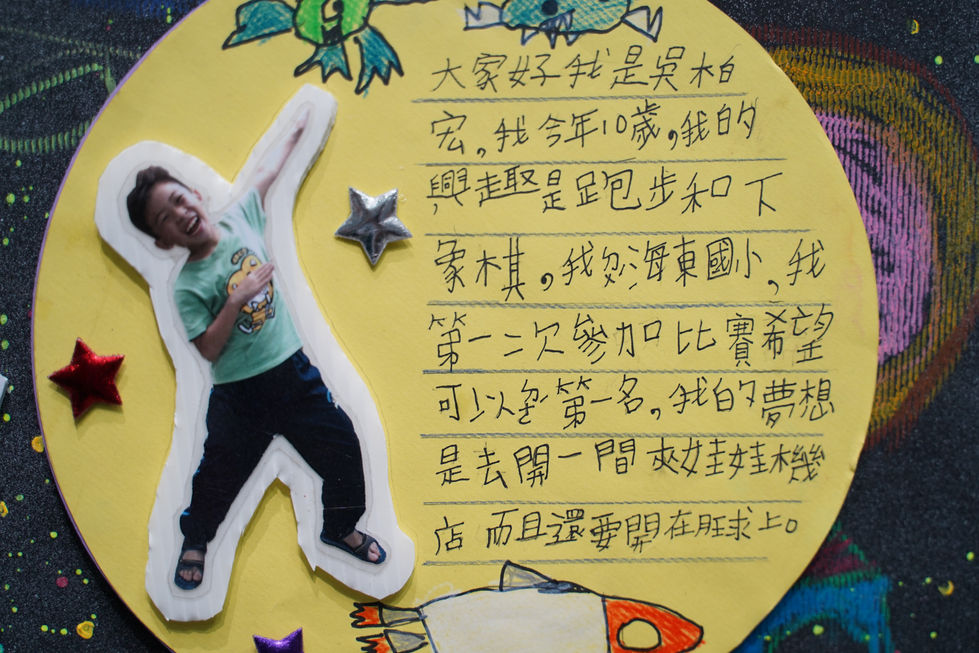 大家好我是吳柏
宏,我今年10歲,我的
興走取是跑步和下
象棋,我念海東國小,我
第一二次參加比賽希望
可以第一名,我的夢想
是去開一間夾娃娃機
店 而且還要開在月球上。